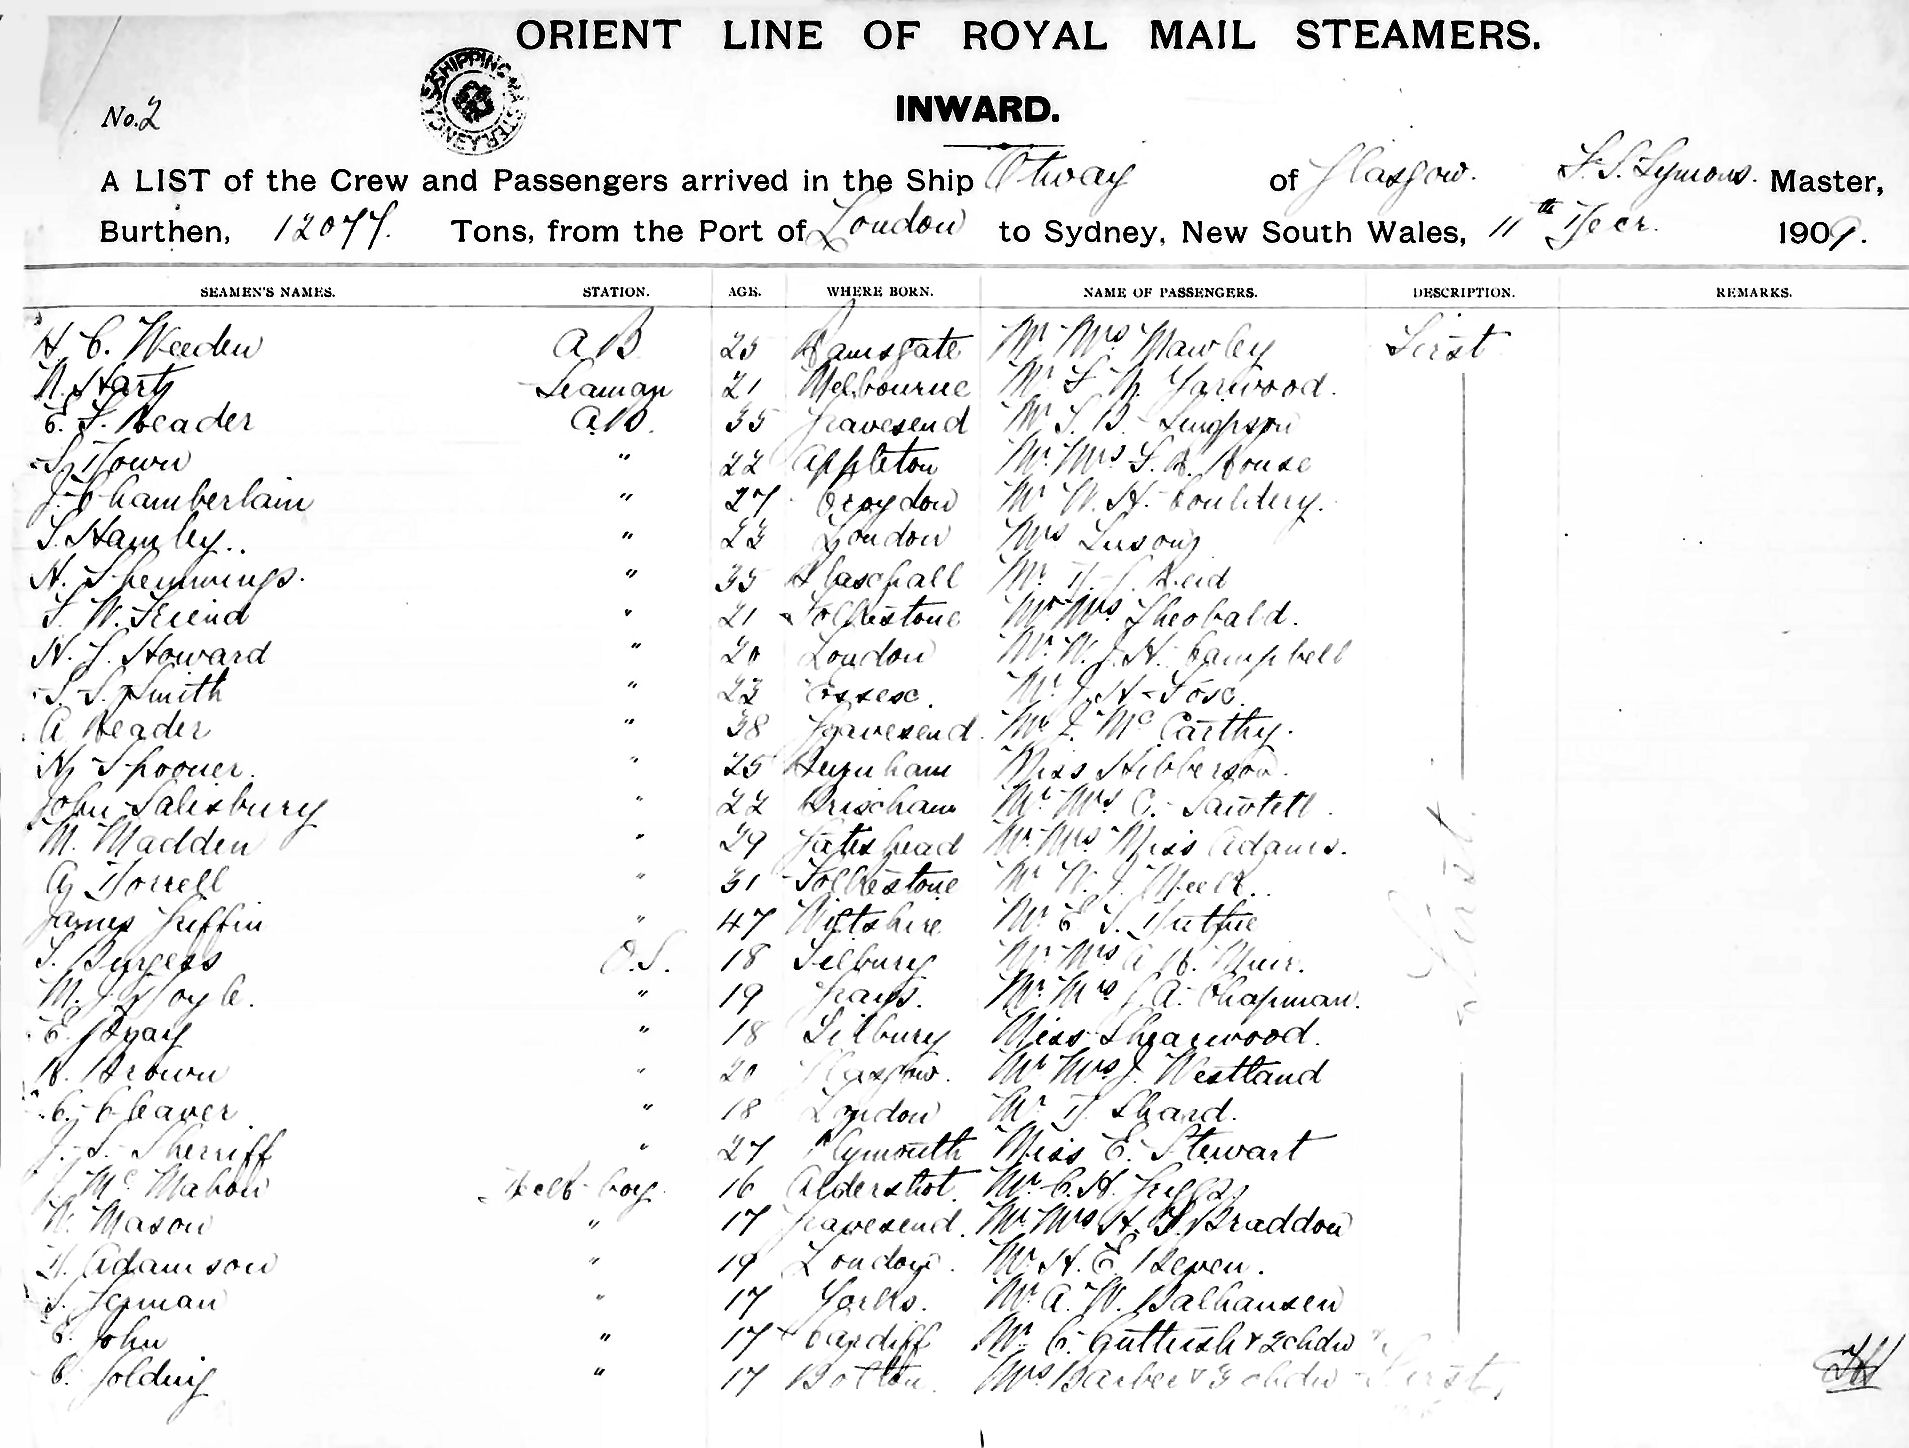 ORIENT LINE OF ROYAL MAIL STEAMERS.
SHIPPING MASTER
No. 2
INWARD.
A LIST of the Crew and Passengers arrived in the Ship Otway of Glasgow. F. S. Symons. Master,
Burthen, 12077. Tons, from the Port of London to Sydney, New South Wales, 11th Decr. 1909.
SEAMEN'S NAMES. STATION. AGE. WHERE BORN. NAME OF PASSENGERS. DESCRIPTION. REMARKS.
H C. Weeden AB 25 Ramsgate Mr Mrs Mawley First
Hart Seaman 21 Melbourne Mr Yarwood.
E. Reader A.B. 35 Gravesend Mr Simpson
Down " 22 Appleton Mr. Mrs House
J. Chamberlain " 27 Croydon Mr W. H. Couldery.
Hamley.. " 23 London Mrs
H. Shemmings. " 35 Mr Reid
W. Friend " 21 Folkestone Mr Mrs Theobald.
H. Howard " 20 London Mr W. J. H. Campbell
S. Smith " 23 Essex. Mr. J. H. Fox.
A Reader " 38 Gravesend. Mr J. McCarthy.
Spooner. " 25 Burnham Miss Hibberson.
John Salisbury " 22 Brixham Mr Mrs C. Sawtell.
M. Madden " 29 Gateshead Mr. Mrs Miss Adams.
Dorrell " 31 Folkestone Mr Meek..
James Griffin " 47 Wiltshire Mr E. Duthie
Burgess O.S. 18 Tilbury Mr Mrs A Muir.
M. J. Doyle. " 19 Grays. Mr. Mrs J. A. Chapman. First.
E. Bray " 18 Tilbury Miss Shearwood.
Brown " 20 Glasgow. Mr Mrs J. Westland
C. Cleaver " 18 London Mr D. Shard.
J. S. Sherriff " 27 Plymouth Miss E. Stewart
J. McMahon Deck boy. 16 Aldershot. Mr. C. H.
W. Mason " 17 Gravesend. Mr. Mrs H. Braddon
D. Adamson " 19 London. Mr. H. E. Beven.
Jerman " 17 Yorks. Mr. A. W. Balhausen
John " 17 Cardiff Mr. C. Guttrish & 2 chdn
C. Golding " 17 Bolton. Mrs Barber & 3 chdn First,